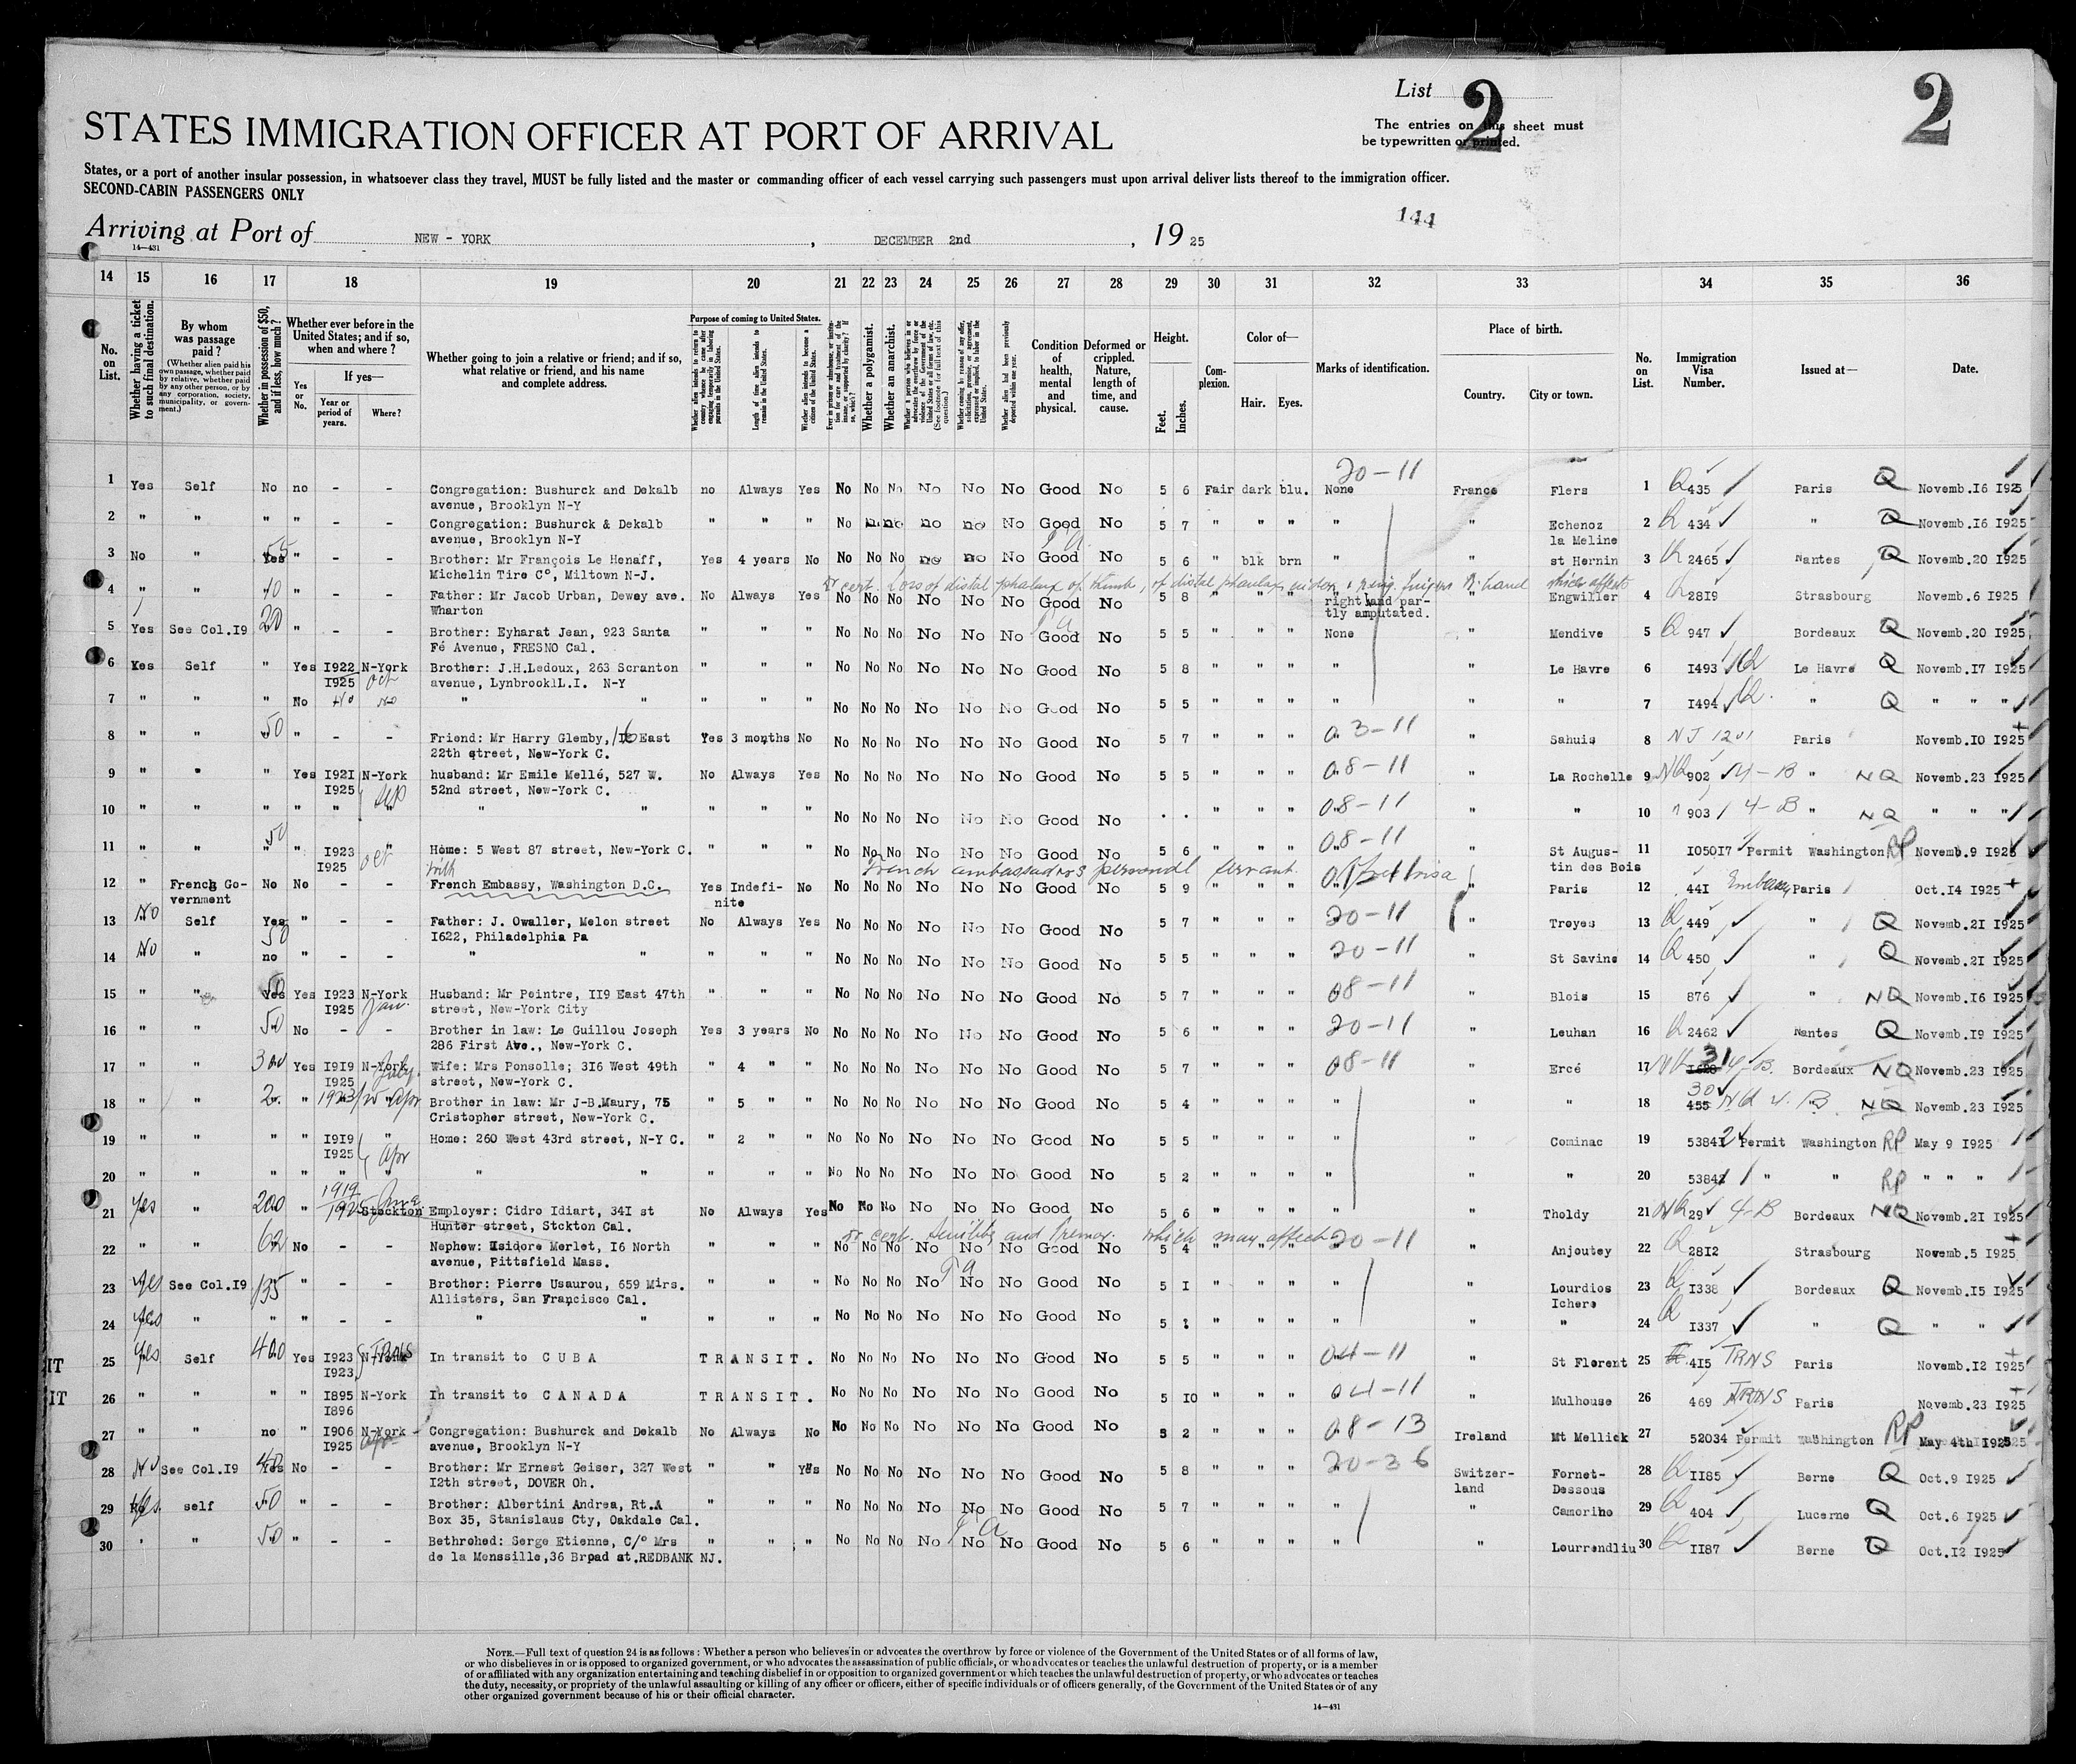 List 2
2
STATES IMMIGRATION OFFICER AT PORT OF ARRIVAL
The entries on this sheet must
be typewritten or printed.
States, or a port of another insular possession, in whatsoever class they travel, MUST be fully listed and the master or commanding officer of each vessel carrying such passengers must upon arrival deliver lists thereof to the immigration officer.
SECOND-CABIN PASSENGERS ONLY
144
Arriving at Port of NEW - YORK , DECEMBER 2nd , 19 25
14—431
14 15 16 17 18 19 20 21 22 23 24 25 26 27 28 29 30 31 32 33 34 35 36
No. on List.
Whether having a ticket to such final destination.
By whom was passage paid?
(Whether alien paid his own passage, whether paid by relative, whether paid by any other person, or by any corporation, society, municipality, or government.)
Whether in possession of $50, and if less, how much?
Whether ever before in the United States; and if so, when and where?
If yes—
Yes or No.
Year or period of years.
Where?
Whether going to join a relative or friend; and if so, what relative or friend, and his name and complete address.
Purpose of coming to United States.
Length of time alien intends to remain in the United States.
Whether alien intends to become a citizen of the United States.
Whether a polygamist.
Whether an anarchist.
Condition of health, mental and physical.
Deformed or crippled. Nature, length of time, and cause.
Height.
Feet. Inches.
Complexion.
Color of—
Hair. Eyes.
Marks of identification.
Place of birth.
Country. City or town.
No. on List.
Immigration Visa Number.
Issued at—
Date.
20-11
1 Yes Self No no - - Congregation: Bushurck and Dekalb no Always Yes No No No No No No Good No 5 6 Fair dark blu. None France Flers 1 Q 435 Paris Q Novemb.I6 I925
avenue, Brooklyn N-Y
2 " " " " - - Congregation: Bushurck & Dekalb " " " No no no no no No Good No 5 7 " " " " " Echenoz 2 Q 434 " Q Novemb.I6 I925
avenue, Brooklyn N-Y la Meline
3 No " Yes 55 " - - Brother: Mr François Le Henaff, Yes 4 years No No No No no no No Good No 5 6 " blk brn " " st Hernin 3 Q 2465 Nantes Q Novemb.20 I925
Michelin Tire C°, Miltown N-J.
Dr cert. Loss of distal phalanx of thumb, of distal phalanx index & ring fingers R. hand which affects
4 " " 40 " - - Father: Mr Jacob Urban, Dewey ave. No Always Yes No No No No No No Good No 5 8 " " " right hand par- " Engwiller 4 Q 28I9 Strasbourg Novemb.6 I925
Wharton tly amputated.
5 Yes See Col.I9 20 " - - Brother: Eyharat Jean, 923 Santa " " " No No No No No No Good No 5 5 " " " None " Mendive 5 Q 947 Bordeaux Q Novemb.20 I925
Fé Avenue, FRESNO Cal.
6 Yes Self " Yes I922 N-York Brother: J.H.Ledoux, 263 Scranton " " " No No No No No No Good No 5 8 " " " " " Le Havre 6 I493 Q Le Havre Q Novemb.I7 I925
I925 Oct avenue, LynbrooklL.I. N-Y
7 " " " No No No " " " " " No No No No No No Good No 5 5 " " " " " " 7 I494 Q " Q " " "
8 " " 50 " - - Friend: Mr Harry Glemby, 16 East Yes 3 months No No No No No No No Good No 5 7 " " " 03-11 " Sahuis 8 NJ 1201 Paris Novemb.I0 I925
22th street, New-York C.
9 " " " Yes I92I N-York husband: Mr Emile Mellé, 527 W. No Always Yes No No No No No No Good No 5 5 " " " 08-11 " La Rochelle 9 NQ 902 4-B " NQ Novemb.23 I925
I925 Sep 52nd street, New-York C.
10 " " " " " " " " " " " No No No No No No Good No . . " " " 08-11 " " 10 903 4-B " NQ " " "
11 " " 50 " I923 Home: 5 West 87 street, New-York C. " " " No No No No No No Good No 5 6 " " " 08-11 " St Augus- 11 I050I7 Permit Washington RP Novemb.9 I925
I925 oct tin des Bois
with French ambassadors personal servant.
12 " French Go- No No - - French Embassy, Washington D.C. Yes Indefi- No No No No No No No Good No 5 9 " " " " Paris 12 44I Embassy Paris Oct.I4 I925
vernment nite
13 No Self Yes 50 " - - Father: J. Owaller, Melon street No Always Yes No No No No No No Good No 5 7 " " " 20-11 " Troyes 13 Q 449 " Q Novemb.2I I925
I622, Philadelphia Pa
14 No " no " - - " " " " " No No No No No No Good No 5 5 " " " 20-11 " St Savine 14 Q 450 " Q Novemb.2I I925
15 " " Yes 50 Yes I923 N-York Husband: Mr Peintre, II9 East 47th " " " No No No No No No Good No 5 7 " " " 08-11 " Blois 15 876 " NQ Novemb.I6 I925
I925 Jan. street, New-York City
16 " " 50 No - - Brother in law: Le Guillou Joseph Yes 3 years No No No No No No No Good No 5 6 " " " 20-11 " Leuhan 16 Q 2462 Nantes Q Novemb.I9 I925
286 First Ave., New-York C.
17 " " 300 Yes I9I9 N-York Wife: Mrs Ponsolle; 3I6 West 49th " 4 " " No No No No No No Good No 5 7 " " " 08-11 " Ercé 17 NQ 31 4-B. Bordeaux NQ Novemb.23 I925
I925 July street, New-York C.
18 " " " 1923/25 Apr Brother in law: Mr J-B.Maury, 75 " 5 " " No No No No No No Good No 5 4 " " " " " " 18 30 455 NQ 4-B " NQ Novemb.23 I925
Cristopher street, New-York C.
19 " " " " I9I9 " Home: 260 West 43rd street, N-Y C. " 2 " " No No No No No No Good No 5 5 " " " " " Cominac 19 5384I Permit Washington RP May 9 I925
I925 Apr
20 " " " " " " " " " " " " No No No No No No Good No 5 2 " " " " " " 20 53842 " " RP " " "
21 Yes " 200 " 1919 1925 Stockton Employer: Cidro Idiart, 34I st No Always Yes No No No No No No Good No 5 6 " " " " " Tholdy 21 NQ 29 4-B Bordeaux NQ Novemb.2I I925
Hunter street, Stckton Cal.
Dr cert. Senility and tremor. which may affect
22 " " 60 No - - Nephew: Isidore Merlet, I6 North " " " No No No No No No Good No 5 4 " " " 20-11 " Anjoutey 22 Q 28I2 Strasbourg Novemb.5 I925
avenue, Pittsfield Mass.
23 Yes See Col.I9 135 " - - Brother: Pierre Usaurou, 659 Mirs. " " " No No No No No No Good No 5 I " " " " " Lourdios 23 Q I338 Bordeaux Q Novemb.I5 I925
Allisters, San Francisco Cal. Ichere
24 Yes " " " - - " " " " " No No No No No No Good No 5 " " " " " " 24 Q I337 " Q " "
IT 25 Yes Self 400 Yes I923 N-York TRNS In transit to C U B A T R A N S I T. No No No No No No Good No 5 5 " " " 04-11 " St Florent 25 4I5 TRNS Paris Novemb.I2 I925
I923
IT 26 " " " " I895 N-York In transit to C A N A D A T R A N S I T. No No No No No No Good No 5 I0 " " " 04-11 " Mulhouse 26 469 TRNS Paris Novemb.23 I925
I896
27 " " no " I906 N-York Congregation: Bushurck and Dekalb No Always No No No No No No No Good No 5 2 " " " 08-13 Ireland Mt Mellick 27 52034 Permit Washington RP May 4th I925
I925 avenue, Brooklyn N-Y
28 No See Col.I9 Yes 40 No - - Brother: Mr Ernest Geiser, 327 West " " Yes No No No No No No Good No 5 8 " " " 20-36 Switzer- Fornet- 28 Q II85 Berne Q Oct.9 I925
I2th street, DOVER Oh. land Dessous
29 Yes self 50 " - - Brother: Albertini Andrea, Rt.A " " " No No No No No No Good No 5 7 " " " " " Camorino 29 Q 404 Lucerne Q Oct.6 I925
Box 35, Stanislaus Cty, Oakdale Cal.
30 " " 50 " - - Bethrohed: Serge Etienne, C/° Mrs " " " No No No No No No Good No 5 6 " " " " " Lourrendliu 30 Q II87 Berne Q Oct.I2 I925
de la Menssille,36 Brpad st.REDBANK NJ.
NOTE.—Full text of question 24 is as follows: Whether a person who believes in or advocates the overthrow by force or violence of the Government of the United States or of all forms of law,
or who disbelieves in or is opposed to organized government, or who advocates the assassination of public officials, or who advocates or teaches the unlawful destruction of property, or is a member
of or affiliated with any organization entertaining and teaching disbelief in or opposition to organized government or which teaches the unlawful destruction of property, or who advocates or teaches
the duty, necessity, or propriety of the unlawful assaulting or killing of any officer or officers, either of specific individuals or of officers generally, of the Government of the United States or of any
other organized government because of his or their official character.
14—431